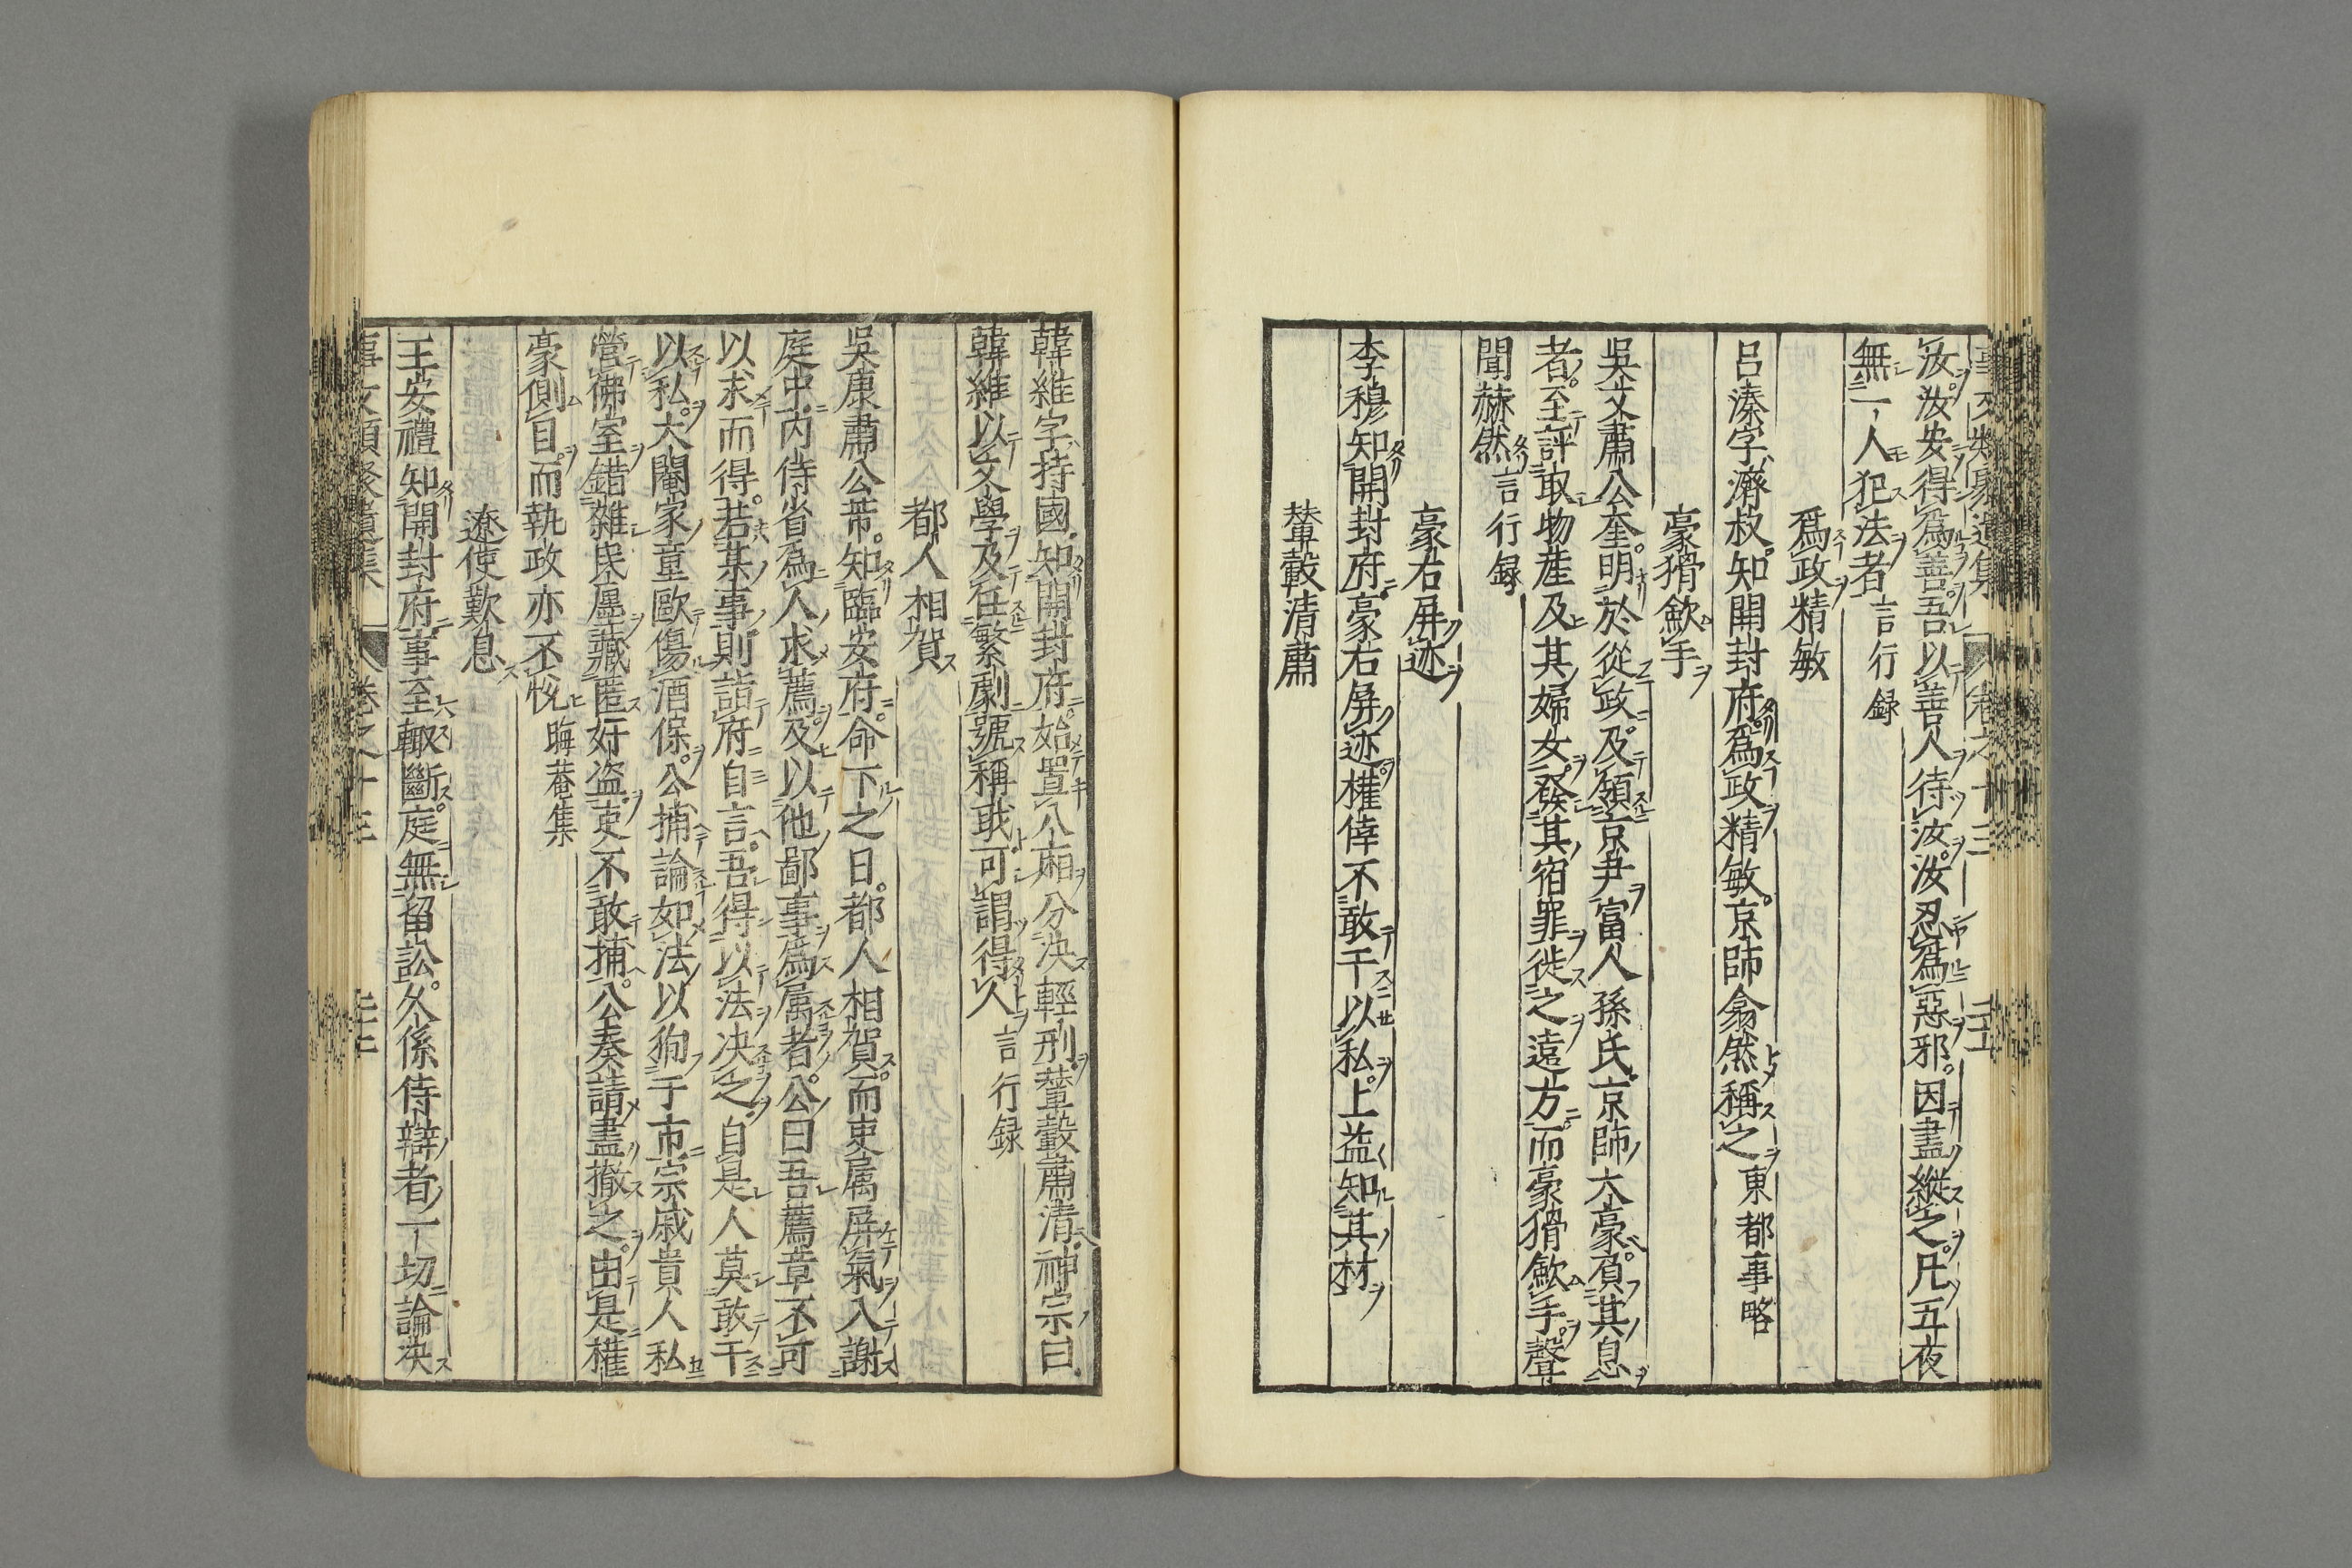 汝汝安得爲善吾以善人待汝汝忍爲惡邪因盡縱之凡五夜
無一人犯法者言行録
爲政精敏
呂溱字濟叔知開封府爲政精敏京師翕然稱之東都事略
豪猾歛手
吳文肅公奎明於從政及領京尹富人孫氏京師大豪負其息
者至評取物産及其婦女發其宿罪徙之遠方而豪猾歛手聲
聞赫然言行録
豪右屏迹
李穆知開封府豪右屏迹權倖不敢干以私上益知其材
輦轂清肅
韓維字持國知開封府始置八廂分決輕刑輦轂肅清神宗曰
韓維以文學及任繁劇號稱職可謂得人言行録
都人相賀
吳康肅公芾知臨安府命下之日都人相賀而吏属屏氣入謝
庭中内侍省爲人求薦及以他鄙事爲属者公曰吾薦章不可
以求而得若某事則詣府自言吾得以法决之自是人莫敢干
以私大閹家童歐傷酒保公捕論如法以狥于市宗戚貴人私
營佛室錯雜民廛藏匿奸盗吏不敢捕公奏請盡撤之由是權
豪側目而執政亦不悦晦菴集
遼使歎息
王安禮知開封府事至輙斷庭無留訟久係待辯者一切論决
事文類聚遺集 卷之十三